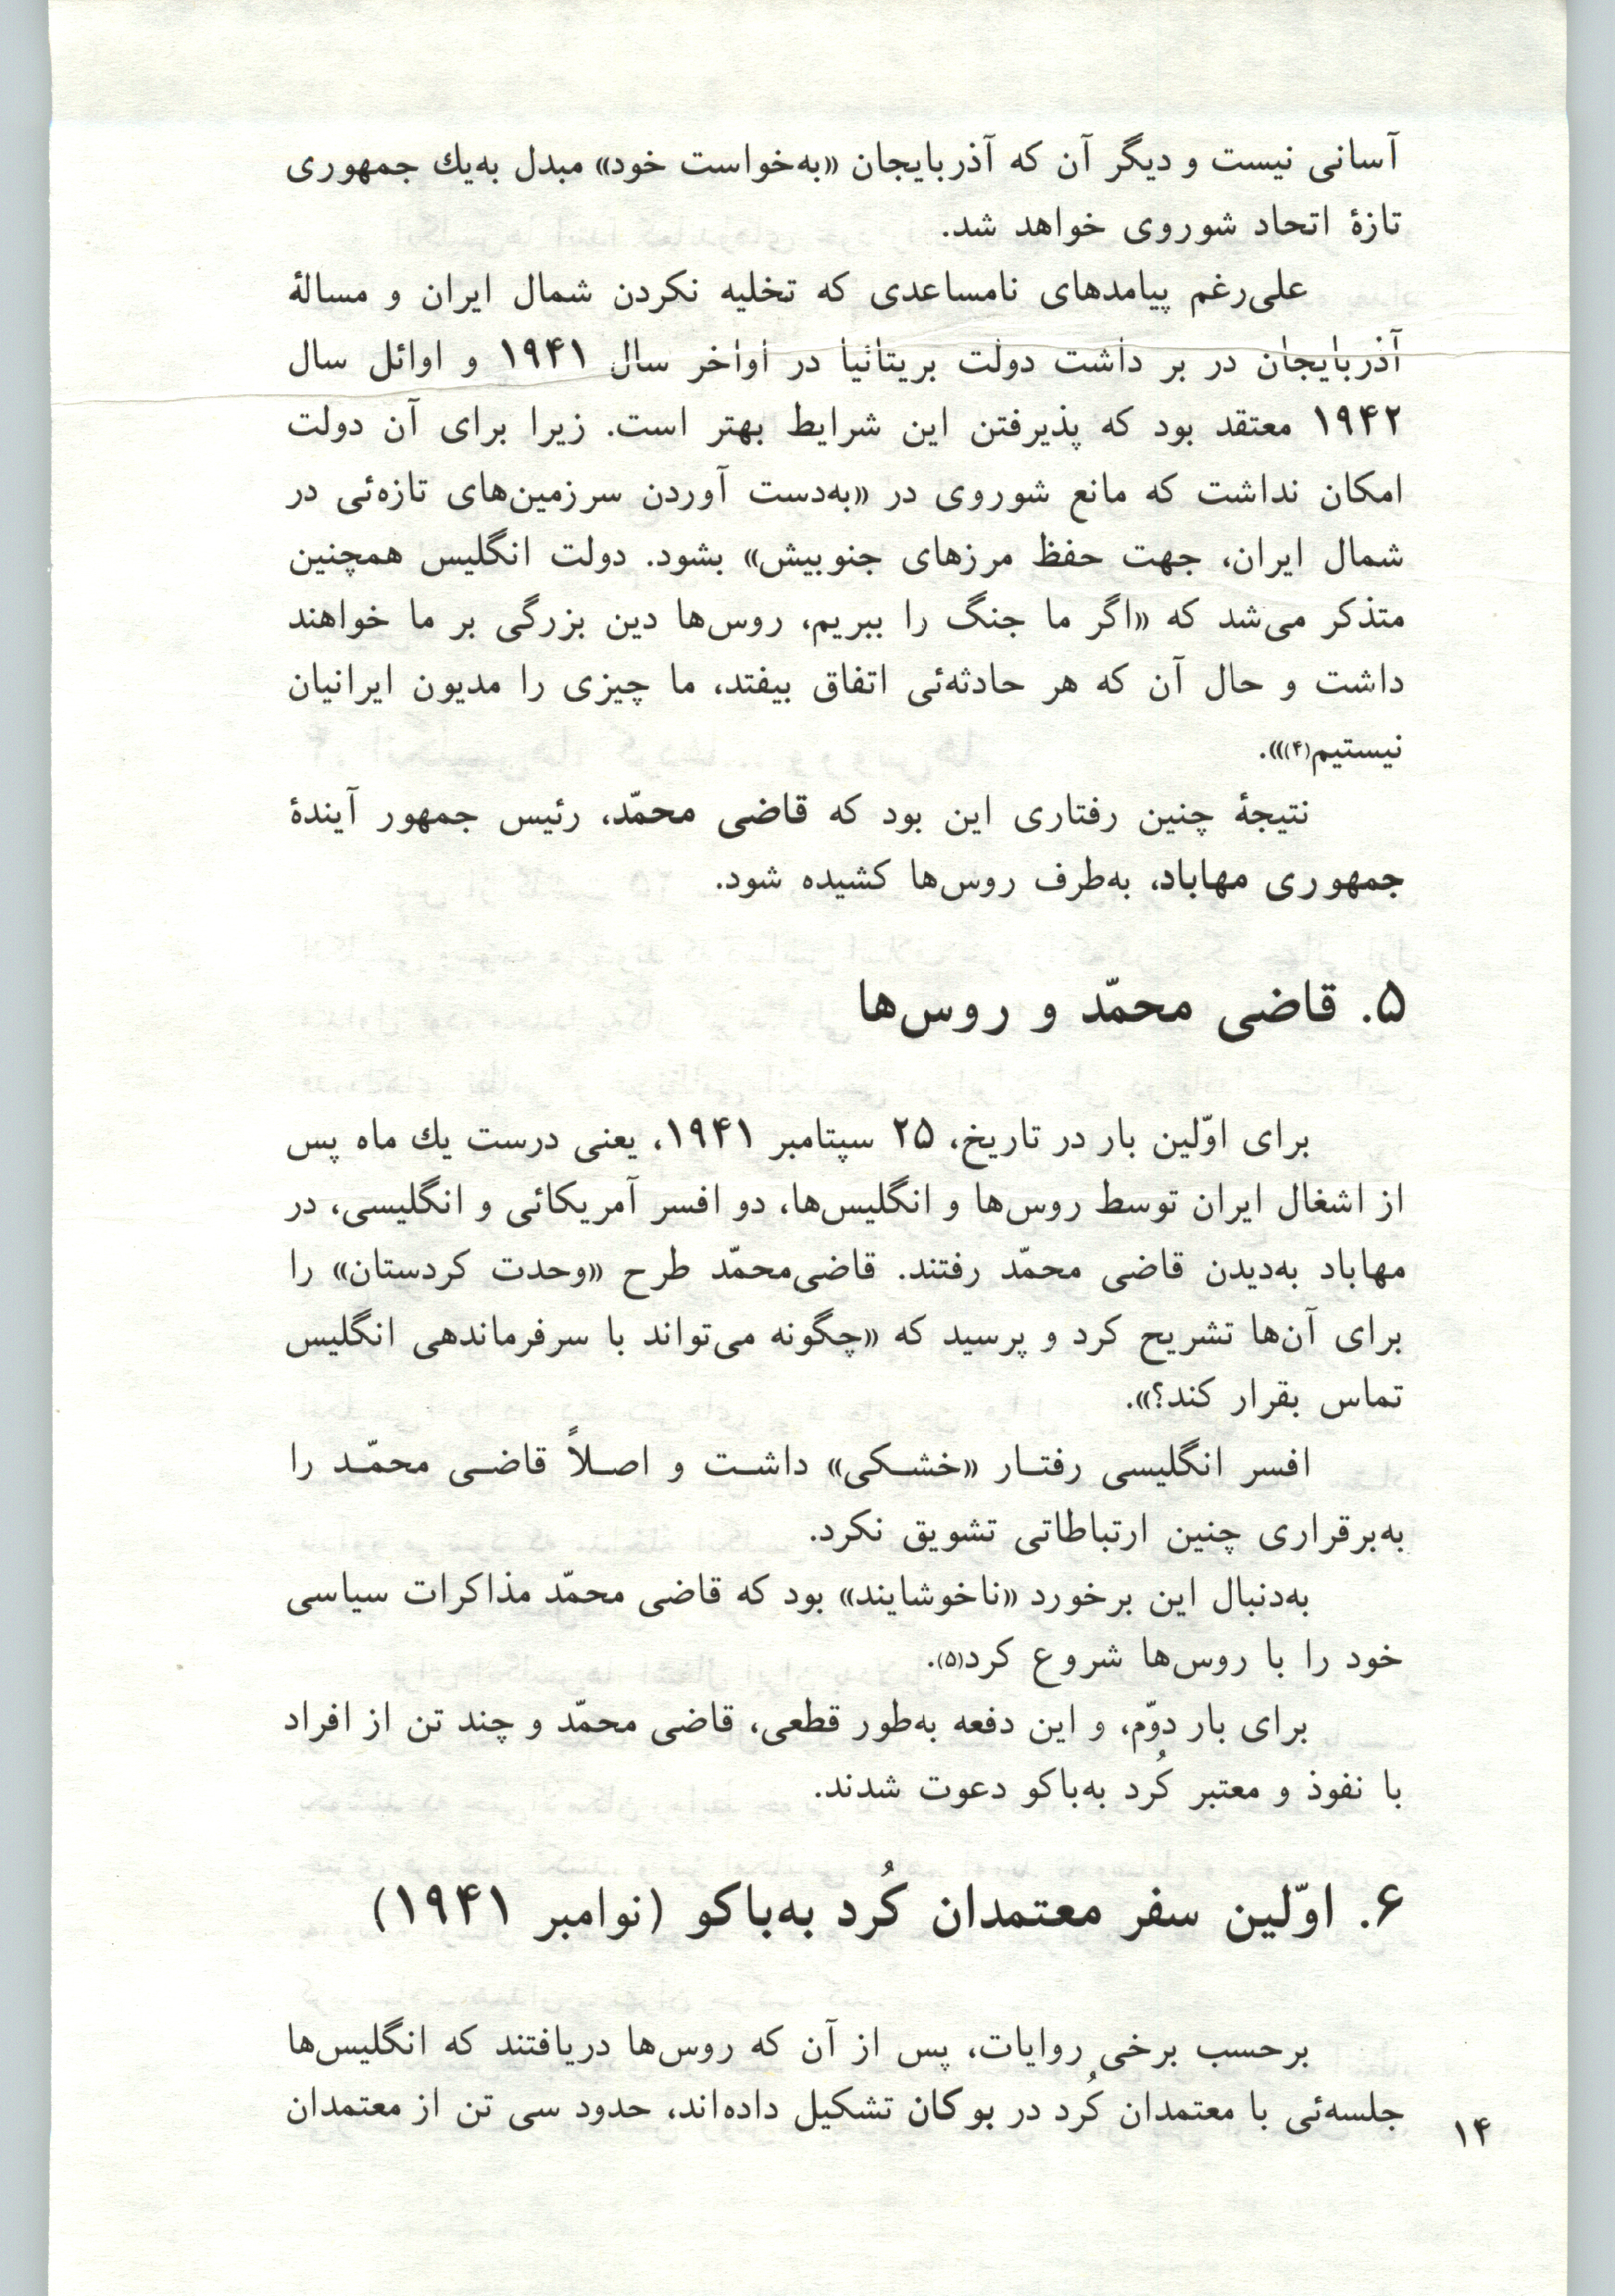 آسانی نیست و دیگر آن که آذربایجان «به‌خواست خود» مبدل به‌یك جمهوری
تازهٔ اتحاد شوروی خواهد شد.
علی‌رغم پیامدهای نامساعدی که تخلیه نکردن شمال ایران و مسالهٔ
آذربایجان در بر داشت دولت بریتانیا در اواخر سال ۱۹۴۱ و اوائل سال
۱۹۴۲ معتقد بود که پذیرفتن این شرایط بهتر است. زیرا برای آن دولت
امکان نداشت که مانع شوروی در «به‌دست آوردن سرزمین‌های تازه‌ئی در
شمال ایران، جهت حفظ مرزهای جنوبیش» بشود. دولت انگلیس همچنین
متذکر می‌شد که «اگر ما جنگ را ببریم، روس‌ها دین بزرگی بر ما خواهند
داشت و حال آن که هر حادثه‌ئی اتفاق بیفتد، ما چیزی را مدیون ایرانیان
نیستیم(۴)».
نتیجهٔ چنین رفتاری این بود که قاضی محمّد، رئیس جمهور آیندهٔ
جمهوری مهاباد، به‌طرف روس‌ها کشیده شود.
۵. قاضی محمّد و روس‌ها
برای اوّلین بار در تاریخ، ۲۵ سپتامبر ۱۹۴۱، یعنی درست یك ماه پس
از اشغال ایران توسط روس‌ها و انگلیس‌ها، دو افسر آمریکائی و انگلیسی، در
مهاباد به‌دیدن قاضی محمّد رفتند. قاضی‌محمّد طرح «وحدت کردستان» را
برای آن‌ها تشریح کرد و پرسید که «چگونه می‌تواند با سرفرماندهی انگلیس
تماس بقرار کند؟».
افسر انگلیسی رفتـار «خشـکی» داشـت و اصـلاً قاضـی محمّـد را
به‌برقراری چنین ارتباطاتی تشویق نکرد.
به‌دنبال این برخورد «ناخوشایند» بود که قاضی محمّد مذاکرات سیاسی
خود را با روس‌ها شروع کرد(۵).
برای بار دوّم، و این دفعه به‌طور قطعی، قاضی محمّد و چند تن از افراد
با نفوذ و معتبر کُرد به‌باکو دعوت شدند.
۶. اوّلین سفر معتمدان کُرد به‌باکو (نوامبر ۱۹۴۱)
برحسب برخی روایات، پس از آن که روس‌ها دریافتند که انگلیس‌ها
جلسه‌ئی با معتمدان کُرد در بوکان تشکیل داده‌اند، حدود سی تن از معتمدان
۱۴